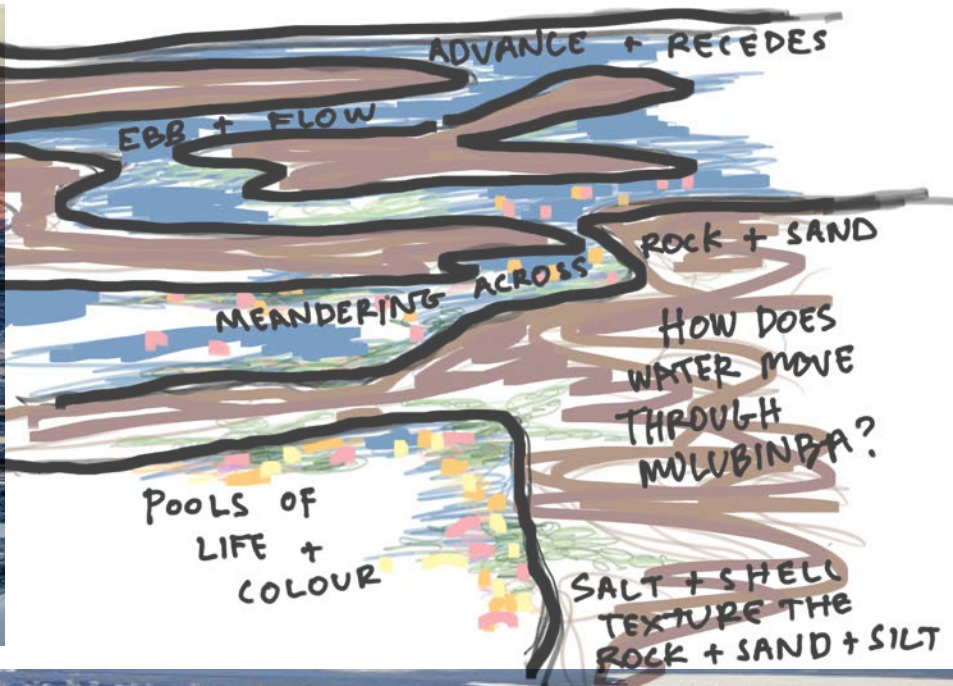 ADVANCE + RECEDES
EBB + FLOW
ROCK + SAND
MEANDERING ACROSS
HOW DOES
WATER MOVE
THROUGH
MULUBINBA?
POOLS OF
LIFE +
COLOUR
SALT + SHELL
TEXTURE THE
ROCK + SAND + SILT